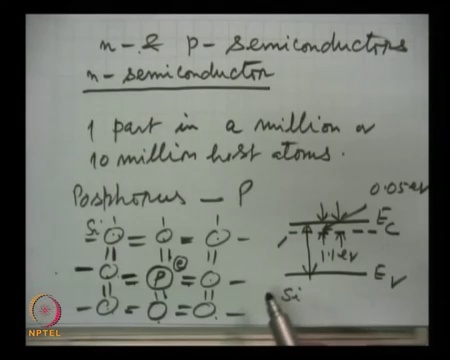 n- & p- semiconductors
n- semiconductor
1 part in a million or
10 million host atoms.
Posphorus — P
0.05 eV
Si
Ec
1.1 eV
P e
Ev
Si
NPTEL